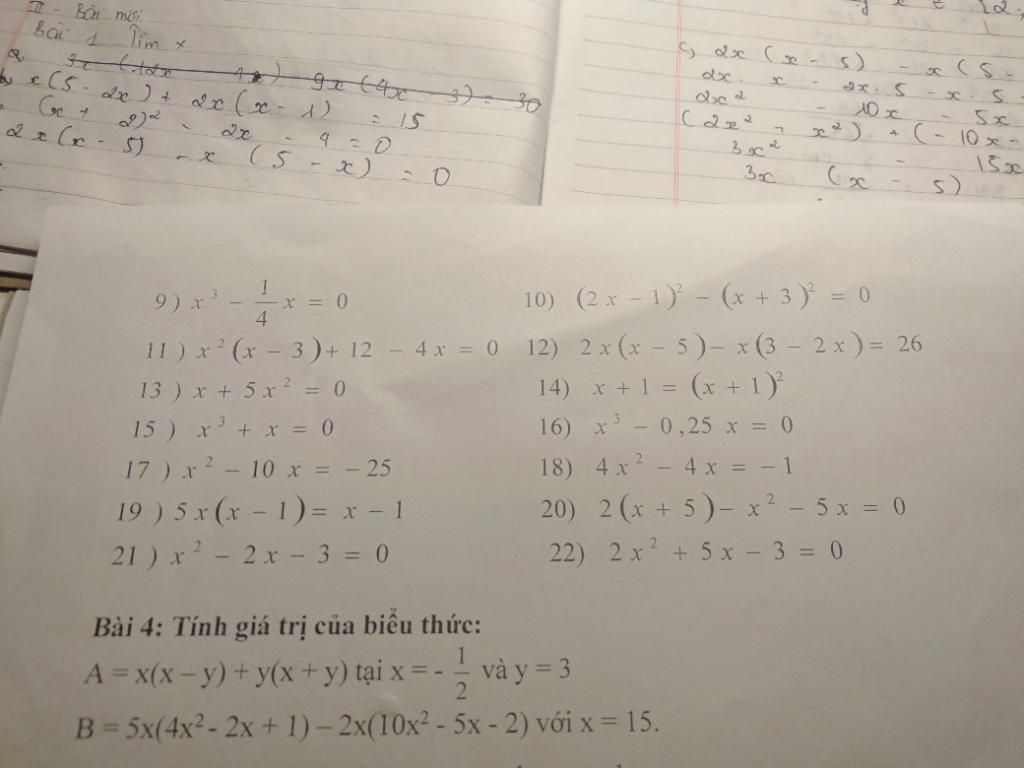 II - Bài mới
Bài 1 Tìm x
a, 3x (12x - 4) - 9x (4x - 3) = 30
b, x(5 - 2x) + 2x(x - 1) = 15
(x + 2)² - 2x - 4 = 0
2x(x - 5) - x (5 - x) = 0
c, 2x (x - 5) - x (5 -
2x . x - 2x . 5 - x . 5
2x² - 10x - 5x
(2x² + x²) + (- 10x -
3x² - 15x
3x (x - 5)
9 ) x³ - 1/4 x = 0
10) (2x - 1)² - (x + 3)² = 0
11 ) x²(x - 3) + 12 - 4x = 0
12) 2x(x - 5) - x(3 - 2x) = 26
13 ) x + 5x² = 0
14) x + 1 = (x + 1)²
15 ) x³ + x = 0
16) x³ - 0,25 x = 0
17 ) x² - 10 x = -25
18) 4x² - 4x = -1
19 ) 5x(x - 1) = x - 1
20) 2(x + 5) - x² - 5x = 0
21 ) x² - 2x - 3 = 0
22) 2x² + 5x - 3 = 0
Bài 4: Tính giá trị của biểu thức:
A = x(x – y) + y(x + y) tại x = - 1/2 và y = 3
B = 5x(4x² - 2x + 1) – 2x(10x² - 5x - 2) với x = 15.